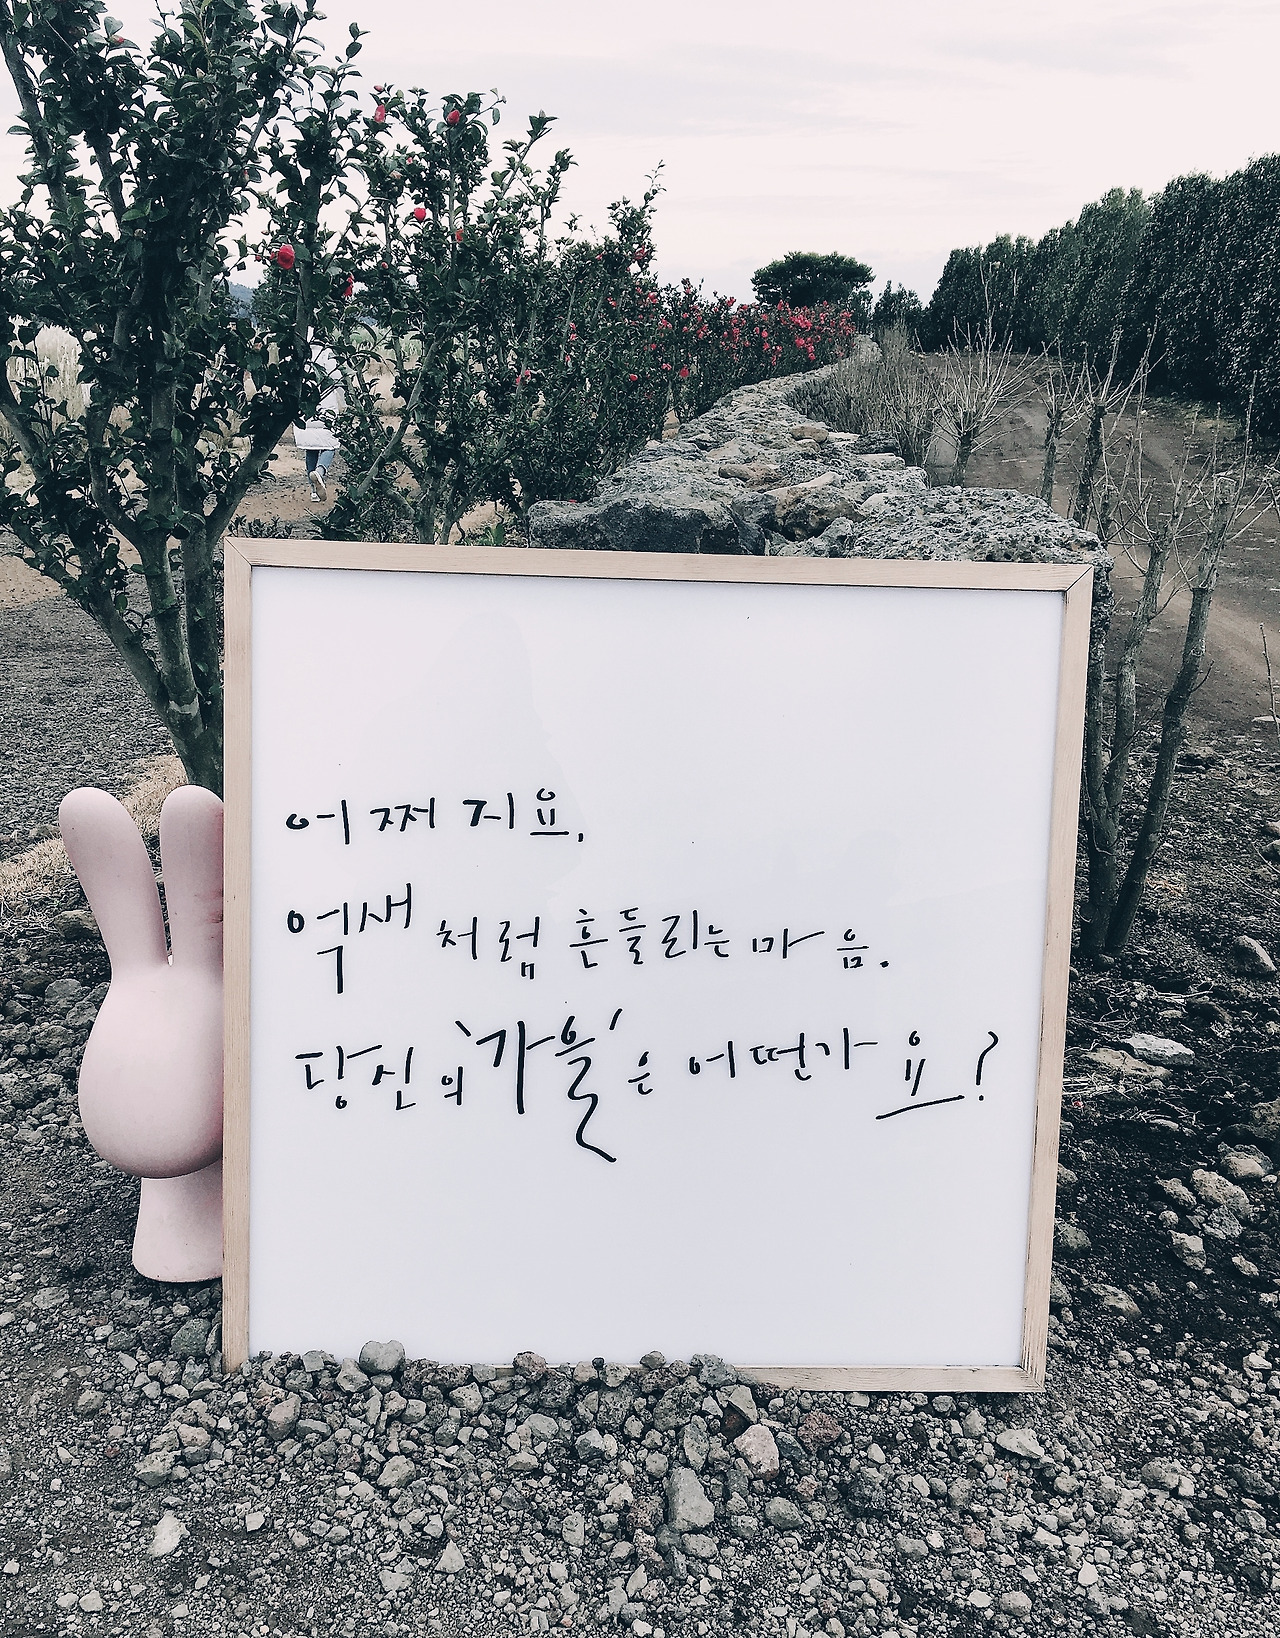 어쩌지요,
억새처럼 흔들리는 마음.
당신의 '가을'은 어떤가요?